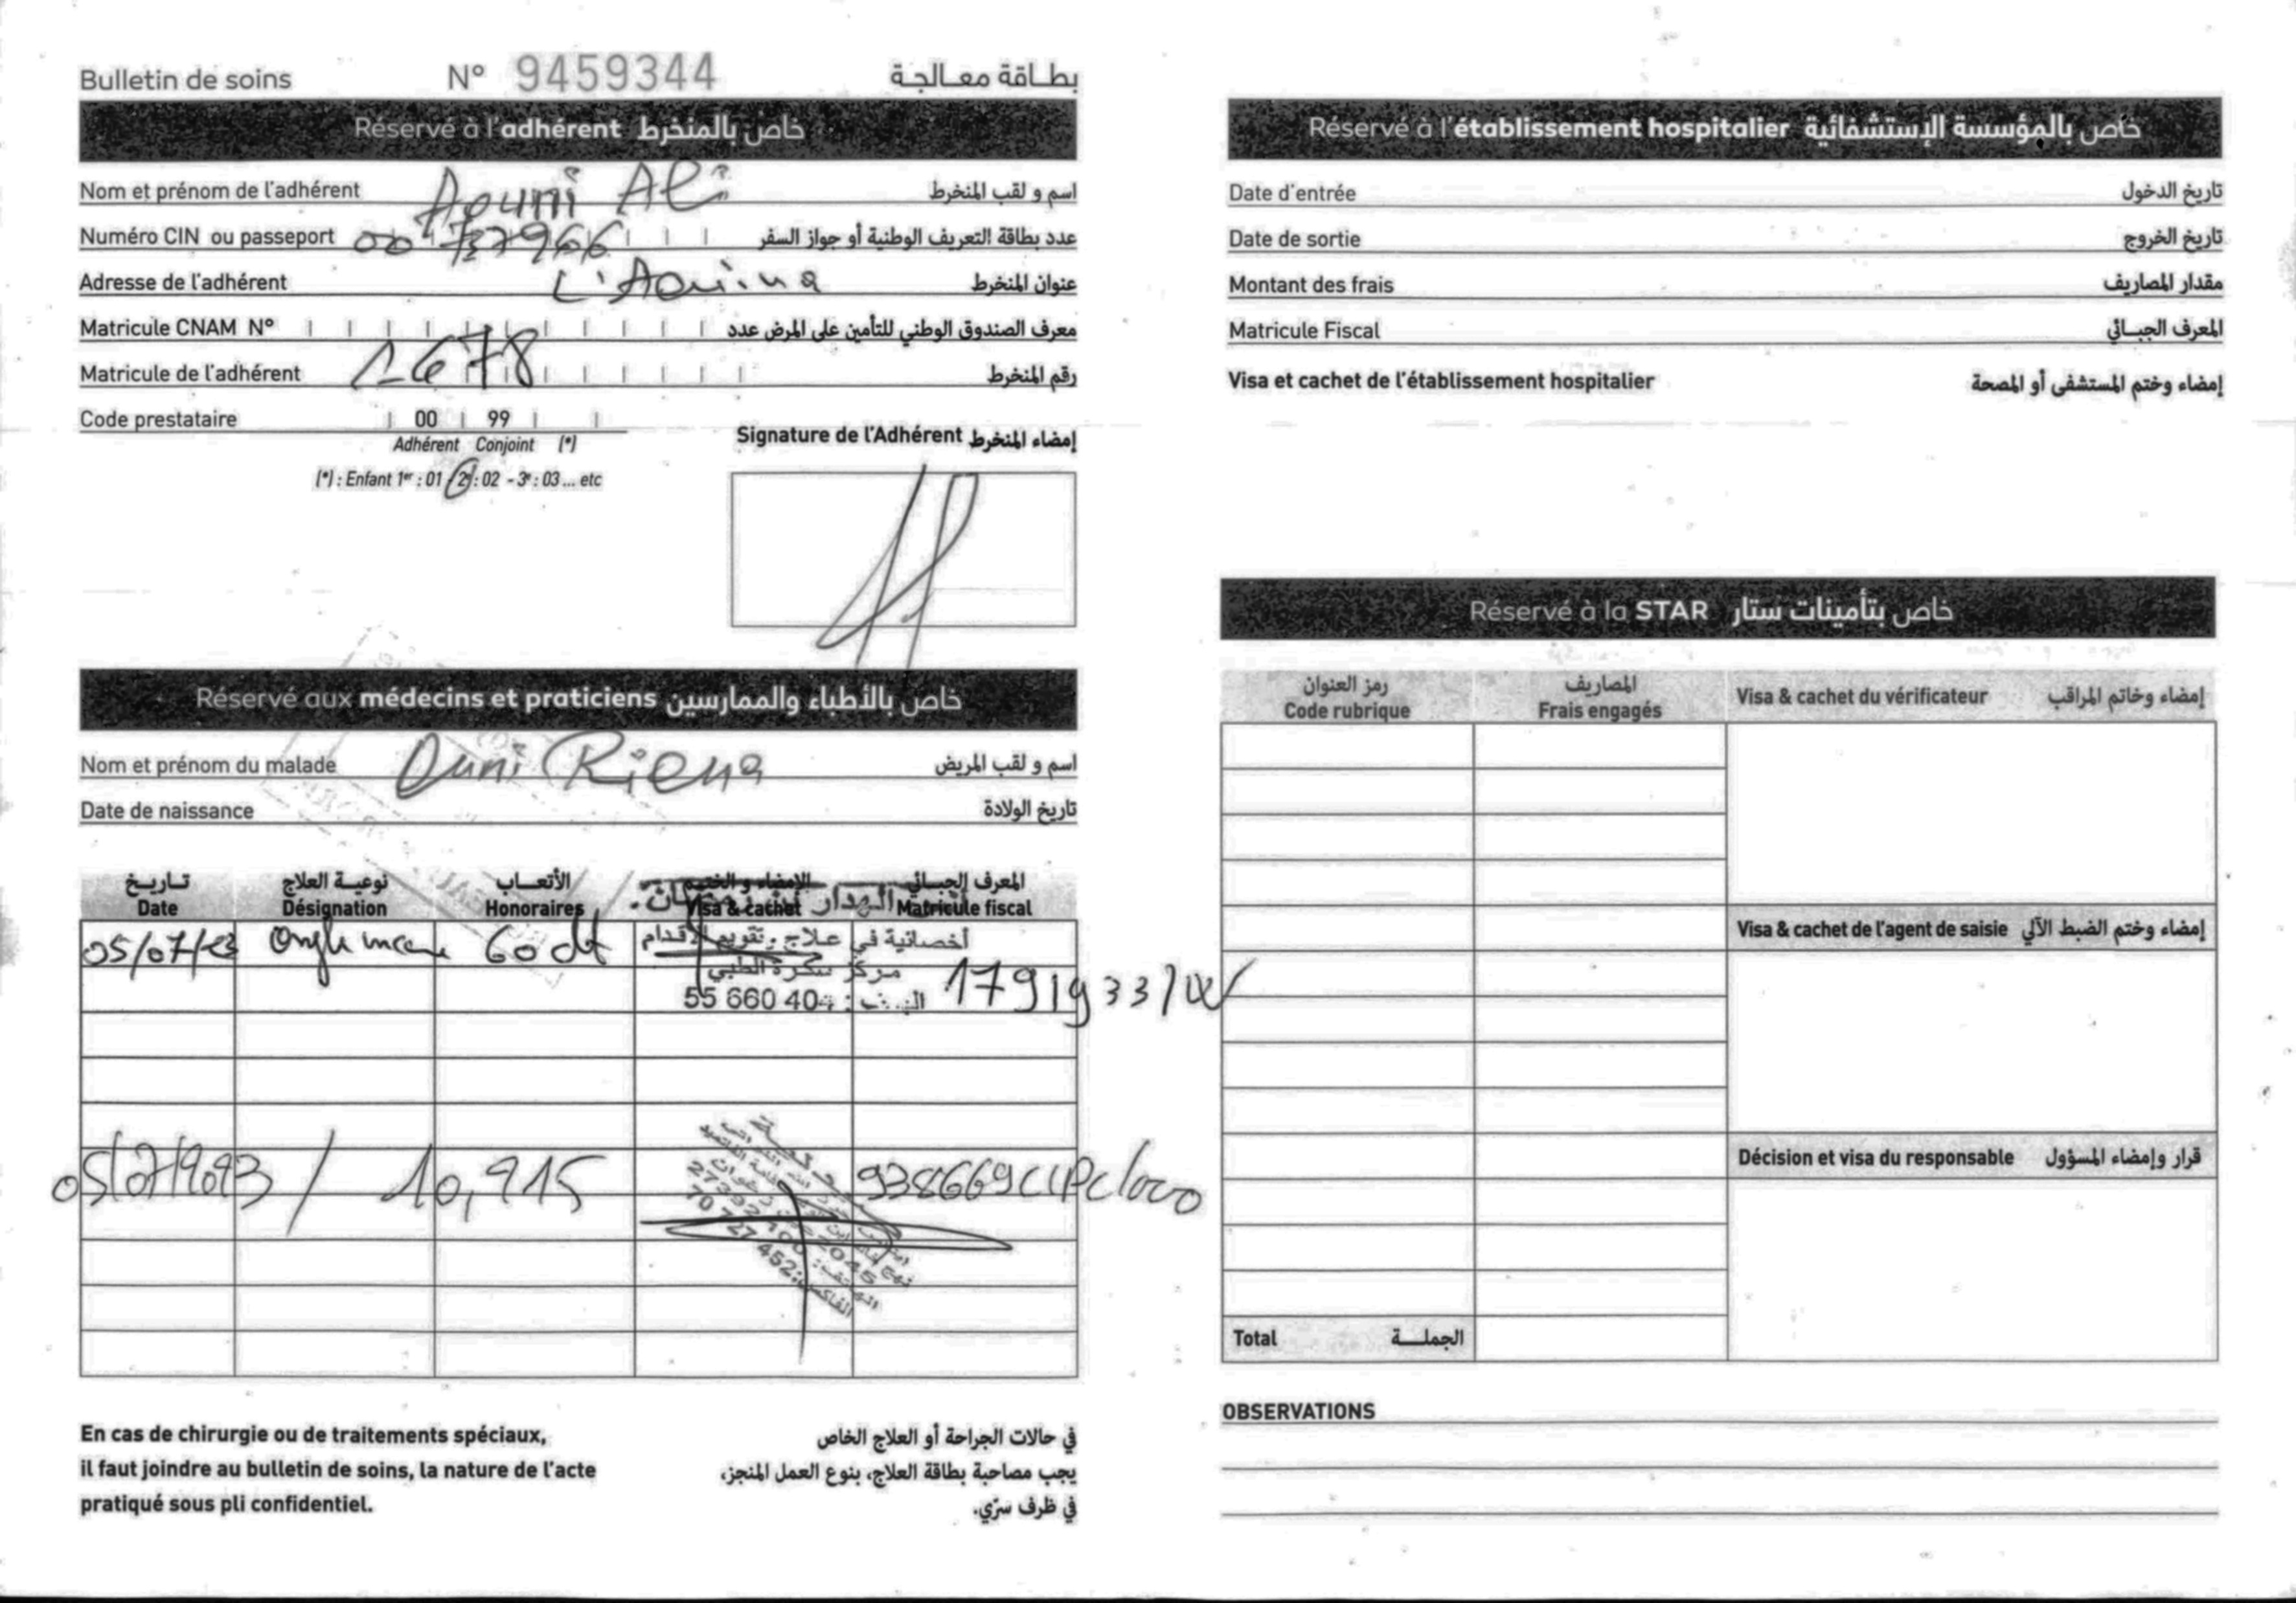 Bulletin de soins N° 9459344 بطاقة معالجة
Réservé à l'adhérent خاص بالمنخرط
Nom et prénom de l'adhérent Aouni Ali اسم و لقب المنخرط
Numéro CIN ou passeport 00737966 عدد بطاقة التعريف الوطنية أو جواز السفر
Adresse de l'adhérent L'Aouina عنوان المنخرط
Matricule CNAM N° معرف الصندوق الوطني للتأمين على المرض عدد
Matricule de l'adhérent 1678 رقم المنخرط
Code prestataire 00 99
Adhérent Conjoint (*)
(*) : Enfant 1er : 01 - 2e : 02 - 3e : 03 ... etc
Signature de l'Adhérent إمضاء المنخرط
Réservé aux médecins et praticiens خاص بالأطباء والممارسين
Nom et prénom du malade Ouni اسم و لقب المريض
Date de naissance تاريخ الولادة
تاريخ نوعية العلاج الأتعاب الإمضاء و الختم المعرف الجبائي
Date Désignation Honoraires Visa & cachet Matricule fiscal
05/07/23 60 dt أخصائية في علاج وتقويم الأقدام
مركز سكرة الطبي
55 660 404
05/07/2023 / 10,915
70 727 452
En cas de chirurgie ou de traitements spéciaux,
il faut joindre au bulletin de soins, la nature de l'acte
pratiqué sous pli confidentiel.
في حالات الجراحة أو العلاج الخاص
يجب مصاحبة بطاقة العلاج، بنوع العمل المنجز،
في ظرف سرّي.
Réservé à l'établissement hospitalier خاص بالمؤسسة الإستشفائية
Date d'entrée تاريخ الدخول
Date de sortie تاريخ الخروج
Montant des frais مقدار المصاريف
Matricule Fiscal المعرف الجبائي
Visa et cachet de l'établissement hospitalier إمضاء وختم المستشفى أو المصحة
Réservé à la STAR خاص بتأمينات ستار
رمز العنوان المصاريف
Code rubrique Frais engagés Visa & cachet du vérificateur إمضاء وخاتم المراقب
Visa & cachet de l'agent de saisie إمضاء وختم الضبط الآلي
Décision et visa du responsable قرار وإمضاء المسؤول
Total الجملة
OBSERVATIONS